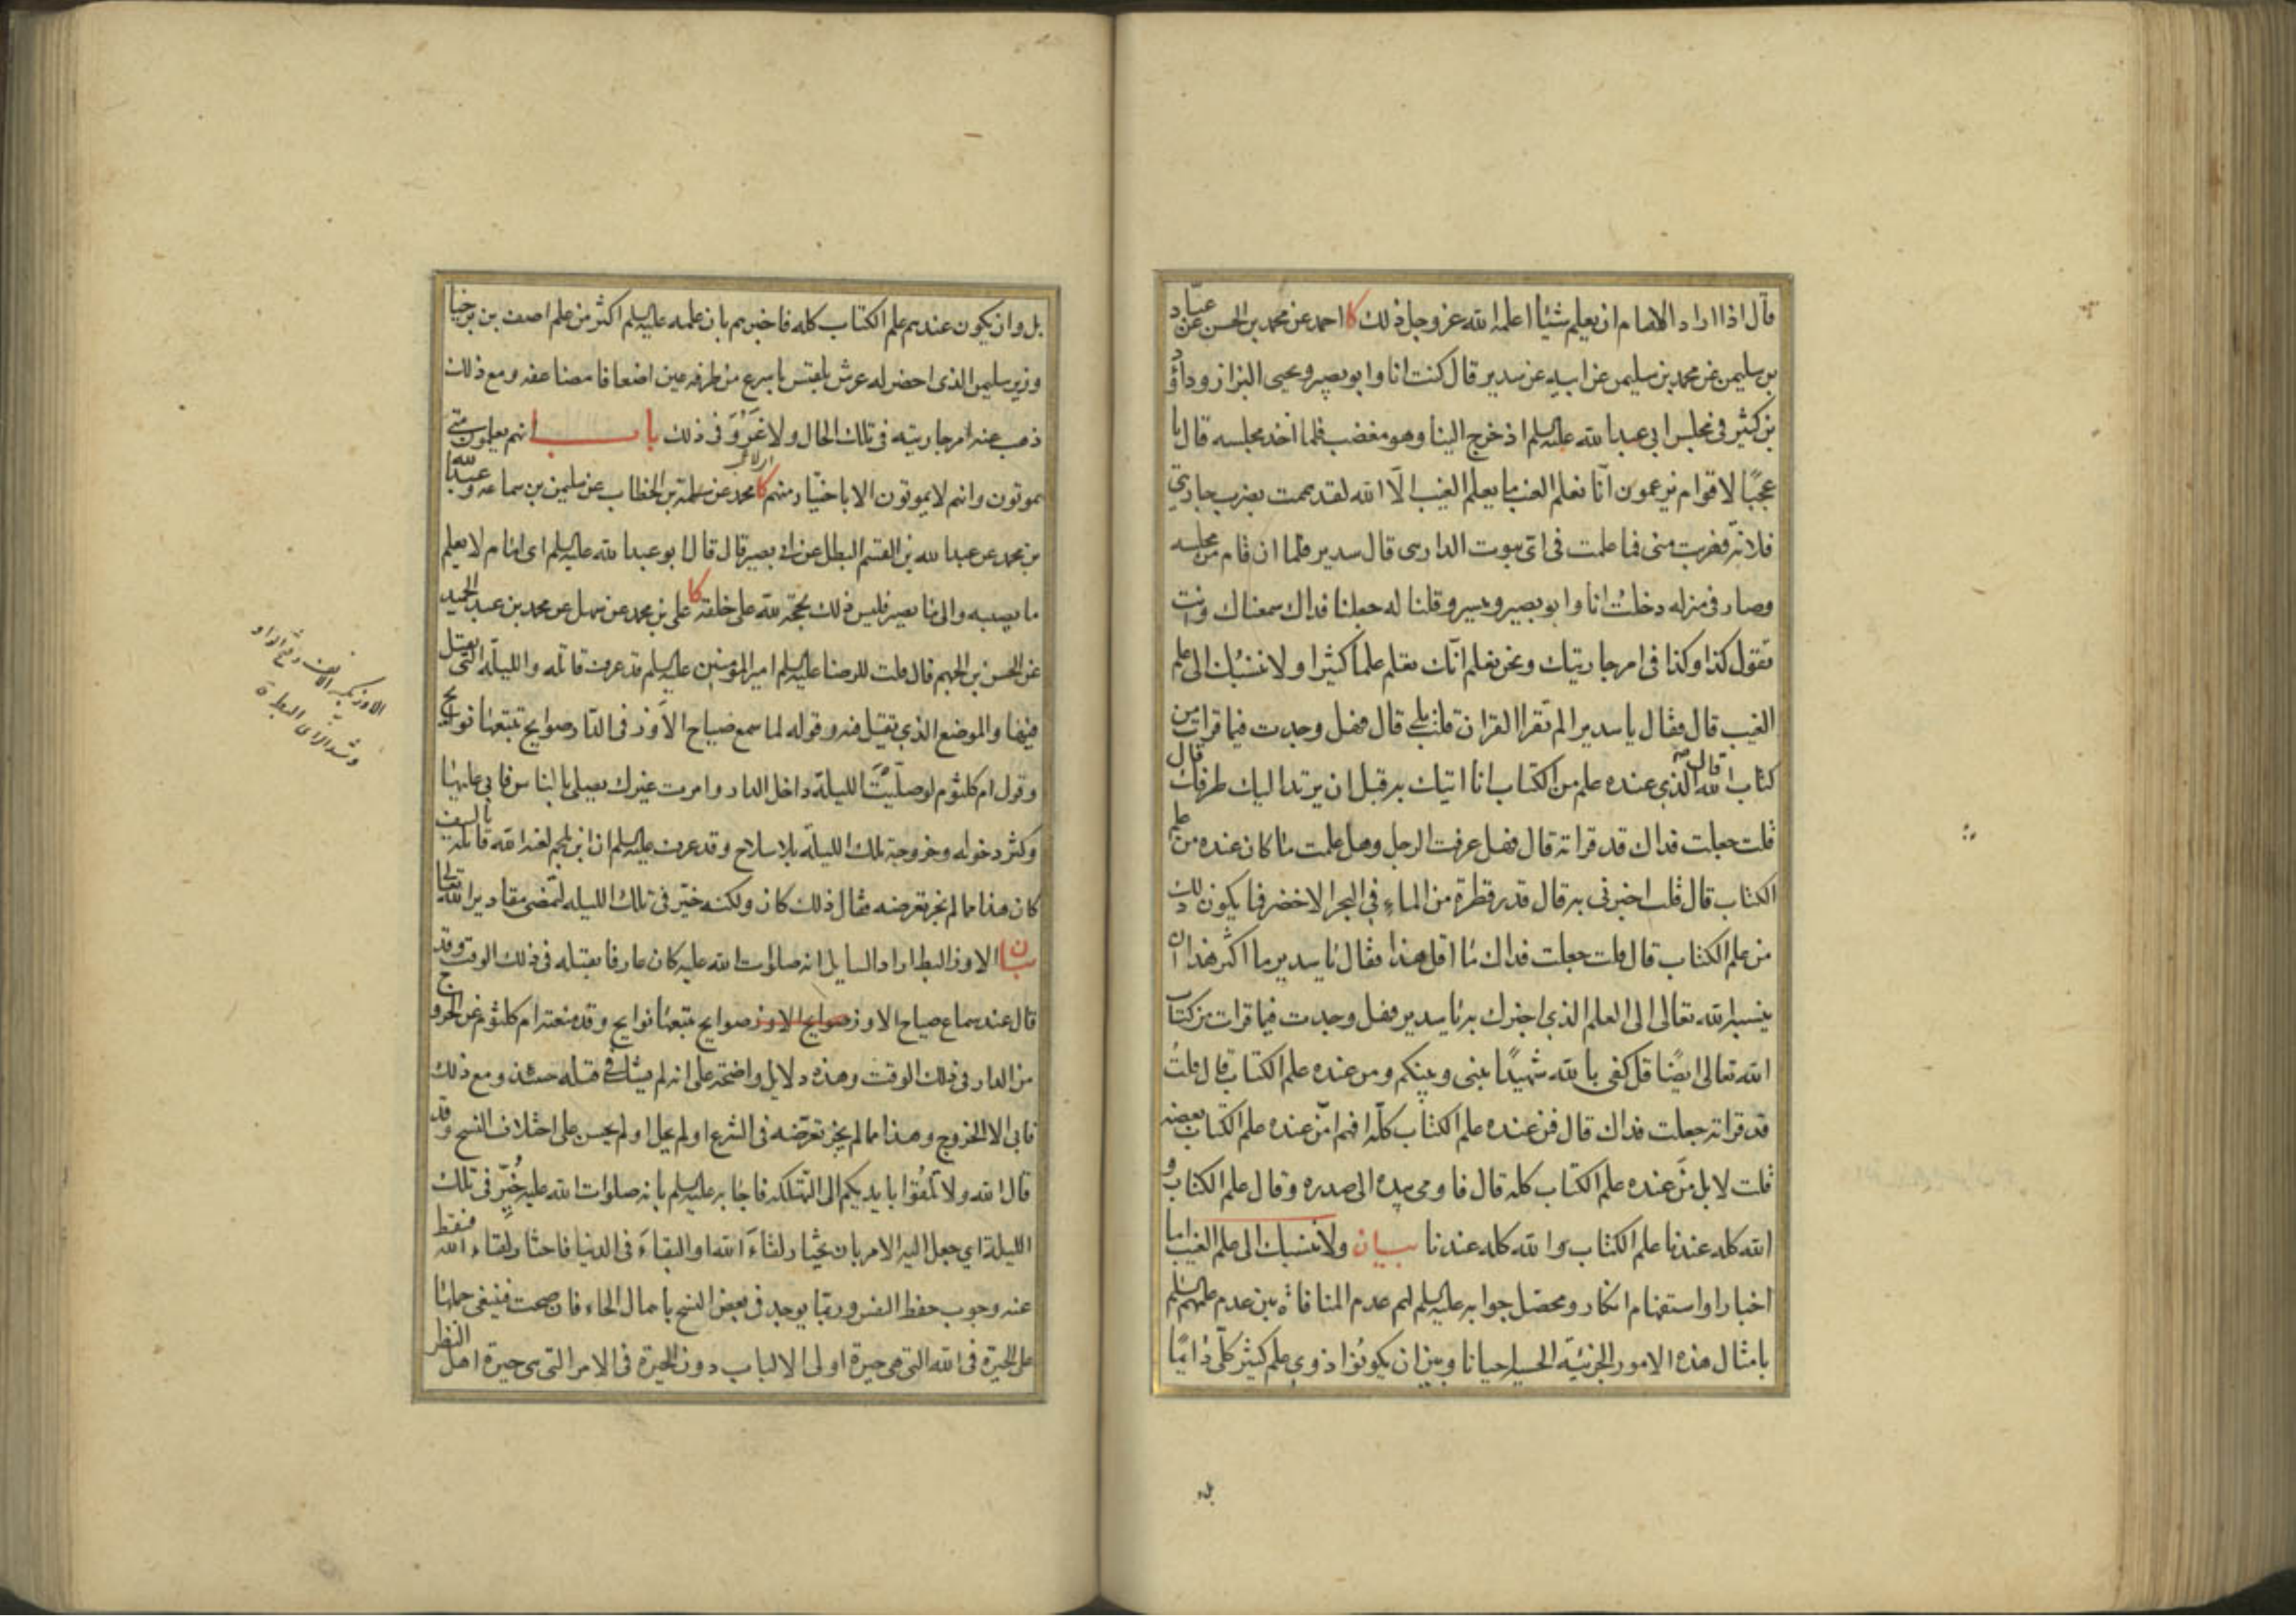 قال اذا اراد الامام ان يعلم شيئا اعلمه الله عز وجل ذلك كا احمد عن محمد بن الحسن عن عبّاد
بن سليمن عن محمد بن سليمن عن ابيه عن سدير قال كنت انا وابو بصير ويحيى البزاز وداود
بن كثير فى مجلس ابي عبد الله عليه السلم اذ خرج الينا وهو مغضب فلما اخذ مجلسه قال يا
عجبًا لاقوام يزعمون انّا نعلم الغيب ما يعلم الغيب الّا الله لقد هممت بضرب جاريتي
فلانة فهربت منى فما علمت فى اىّ بيوت الدار هى قال سدير فلما ان قام من مجلسه
وصار فى منزله دخلت انا وابو بصير وميسر وقلنا له جعلنا فداك سمعناك وانت
تقول كذا وكذا فى امر جاريتك ونحن نعلم انّك تعلم علما كثيرا ولا ننسبك الى علم
الغيب قال فقال يا سدير الم تقرا القران قلت بلى قال فهل وجدت فيما قرات من
كتاب الله قال الذي عنده علم من الكتاب انا اتيك به قبل ان يرتد اليك طرفك قال
قلت جعلت فداك قد قراته قال فهل عرفت الرجل وهل علمت ما كان عنده من علم
الكتاب قال قلت اخبرنى به قال قدر قطرة من الماء في البحر الاخضر فما يكون ذلك
من علم الكتاب قال قلت جعلت فداك ما اقل هذا فقال يا سدير ما اكثر هذا ان
ينسبه الله تعالى الى العلم الذي اخبرك به يا سدير فهل وجدت فيما قرات من كتاب
الله تعالى ايضًا قل كفى بالله شهيدًا بينى وبينكم ومن عنده علم الكتاب قال قلت
قد قراته جعلت فداك قال فمن عنده علم الكتاب كلّه افهم امّن عنده علم الكتاب بعضه
قلت لا بل مَن عنده علم الكتاب كله قال فاومى بيده الى صدره وقال علم الكتاب و
الله كله عندنا علم الكتاب والله كله عندنا بيان ولا ننسبك الى علم الغيب اما
اخبار او استفهام انكار ومحصّل جوابه عليه السلم لهم عدم المنافاة بين عدم علمهم عليهم السلم
بامثال هذه الامور الجزئيّة الحسية احيانا وبين ان يكونوا ذوي علم كثير كلّى دائمًا
بل و
بل وان يكون عندهم علم الكتاب كله فاخبرهم بان علمه عليه السلم اكثر من علم اصف بن برخيا
وزير سليمن الذى احضر له عرش بلقيس باسرع من طرفه عين اضعافا مضاعفه ومع ذلك
ذهب عنه امر جاريته فى تلك الحال ولا غَرْوَ فى ذلك باب انهم يعلمون متى
يموتون وانهم لا يموتون الا باختيار منهم كا محمد عن سلمة بن الخطاب عن سليمن بن سماعه وعبد الله
بن محمد عن عبد الله بن القسم البطل عن ابى بصير قال قال ابو عبد الله عليه السلم اى امام لا يعلم
ما يصيبه والى ما يصير فليس ذلك بحجّة لله على خلقه كا على بن محمد عن سهل عن محمد بن عبد الحميد
عن الحسن بن الجهم قال قلت للرضا عليه السلم امير المؤمنين عليه السلم قد عرف قاتله والليلة التى يقتل
فيها والموضع الذي يقتل فيه وقوله لما سمع صياح الاوز فى الدّار صوايح تتبعها نوايح
وقول ام كلثوم لو صلّيتَ الليلة داخل الدار وامرت غيرك يصلى بالناس فابى عليها
وكثر دخوله وخروجه تلك الليلة بلا سلاح وقد عرف عليه السلم ان ابن ملجم لعنه الله قاتله بالسيف
كان هذا مما لم يجز تعرضه فقال ذلك كان ولكنه خيّر فى تلك الليله لتمضى مقادير الله تعالى
بيان الاوز البط اراد السايل انه صلوات الله عليه كان عارفا بقتله فى ذلك الوقت وقد
قال عند سماع صياح الاوز صوايح الاوز صوايح تتبعها نوايح وقد منعته ام كلثوم عن الخروج
من الدار فى ذلك الوقت وهذه دلايل واضحة على انه لم يشك فى قتله حينئذ ومع ذلك
فابى الا الخروج وهذا مما لم يجز تعرّضه فى الشرع او لم يحل او لم يحسن على اختلاف النسخ وقد
قال الله ولا تلقوا بايديكم الى التهلكه فاجابه عليه السلم بانه صلوات الله عليه خُيِّر فى تلك
الليلة اي جعل اليه الامر بان يختار لقاءَ الله او البقاءَ فى الدنيا فاختار لقاء الله فسقط
عنه وجوب حفظ النفس وربّما يوجد فى بعض النسخ باهمال الحاء فان صحت فينبغى حملها
على الحيرة فى الله التى هى حيرة اولى الالباب دون الحيرة فى الامر التى هى حيرة اهل النظر
الاوز بكسر الالف وفتح الواو
وشد الزاى البط